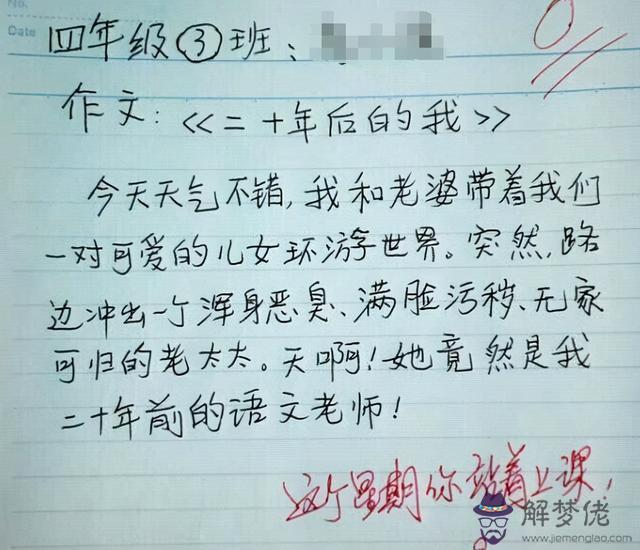 No.
Date
四年级③班:
0
作文:《二十年后的我》
今天天气不错,我和老婆带着我们
一对可爱的儿女环游世界。突然,路
边冲出一个浑身恶臭、满脸污秽、无家
可归的老太太。天啊!她竟然是我
二十年前的语文老师!
这个星期你站着上课,
解梦佬
www.jiemenglao.com